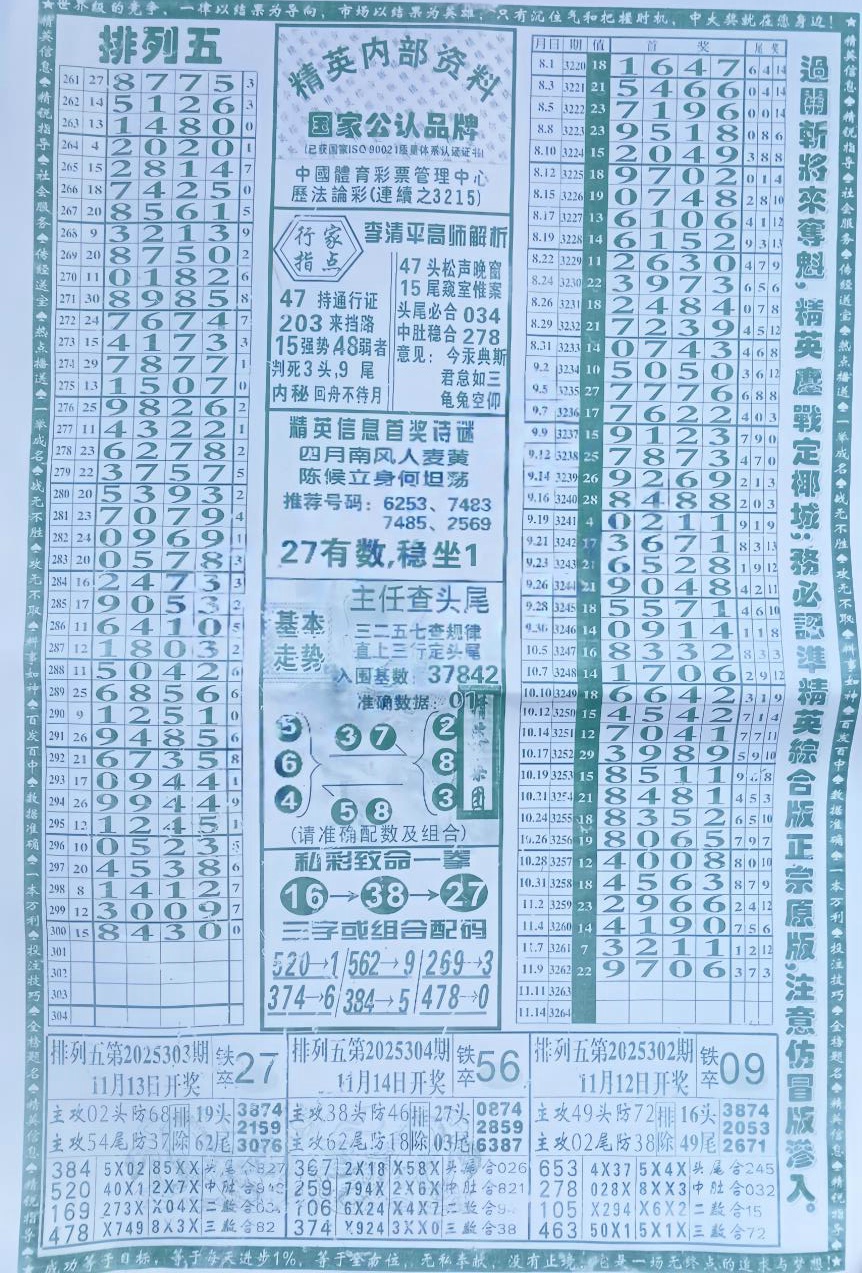 ★世界级的竞争，一律以结果为导向，市场以结果为英雄，只有沉住气和把握时机，中大奖就在您身边！★
排列五
261 27 8 7 7 5 3
262 14 5 1 2 6 3
263 13 1 4 8 0 0
264 4 2 0 2 0 1
265 15 2 8 1 4 7
266 18 7 4 2 5 0
267 20 8 5 6 1 5
268 9 3 2 1 3 9
269 20 8 7 5 0 2
270 11 0 1 8 2 6
271 30 8 9 8 5 8
272 24 7 6 7 4 7
273 15 4 1 7 3 3
274 29 7 8 7 7 1
275 13 1 5 0 7 0
276 25 9 8 2 6 2
277 11 4 3 2 2 1
278 23 6 2 7 8 2
279 22 3 7 5 7 5
280 20 5 3 9 3 2
281 23 7 0 7 9 4
282 24 0 9 6 9 1
283 20 0 5 7 8 3
284 16 2 4 7 3 3
285 17 9 0 5 3 2
286 11 6 4 1 0 5
287 12 1 8 0 3 2
288 11 5 0 4 2 6
289 25 6 8 5 6 6
290 9 1 2 5 1 0
291 26 9 4 8 5 6
292 21 6 7 3 5 8
293 17 0 9 4 4 1
294 26 9 9 4 4 9
295 12 1 2 4 5 1
296 10 0 5 2 3 5
297 20 4 5 3 8 6
298 8 1 4 1 2 7
299 12 3 0 0 9 7
300 15 8 4 3 0 0
301
302
303
304
精英内部资料
国家公认品牌
(已获国家ISO 90021质量体系认证证书)
中國體育彩票管理中心
歷法論彩(連續之3215)
行家指点
李清平高师解析
47 持通行证
203 来挡路
15强势 48弱者
判死3头,9 尾
内秘 回舟不待月
47 头松声晚窗
15 尾窥室惟案
头尾必合 034
中肚稳合 278
意见：今汞典斯
君怠如三
龟兔空仰
精英信息首奖诗谜
四月南风人麦黄
陈候立身何坦荡
推荐号码：6253、7483
7485、2569
27有数,稳坐1
基本走势
主任查头尾
三二五七查规律
直上三行定头尾
入围基数：37842
准确数据：01
5 6 4
3 7
5 8
2 8 3
(请准确配数及组合)
私彩致命一拳
16→38→27
三字或组合配码
520→1 562→9 269→3
374→6 384→5 478→0
月日 期 值 首 奖 尾奖
8.1 3220 18 1 6 4 7 6 4 14
8.3 3221 21 5 4 6 6 0 4 14
8.5 3222 23 7 1 9 6 0 0 14
8.8 3223 23 9 5 1 8 0 8 6
8.10 3224 15 2 0 4 9 3 8 8
8.12 3225 18 9 7 0 2 0 1 4
8.15 3226 19 0 7 4 8 2 8 10
8.17 3227 13 6 1 0 6 4 1 12
8.19 3228 14 6 1 5 2 9 3 13
8.22 3229 11 2 6 3 0 4 7 9
8.24 3230 22 3 9 7 3 6 5 6
8.26 3231 18 2 4 8 4 0 7 8
8.29 3232 21 7 2 3 9 4 5 12
8.31 3233 14 0 7 4 3 4 6 8
9.2 3234 10 5 0 5 0 3 6 12
9.5 3235 27 7 7 7 6 6 8 8
9.7 3236 17 7 6 2 2 4 0 3
9.9 3237 15 9 1 2 3 7 9 0
9.12 3238 25 7 8 7 3 4 7 0
9.14 3239 26 9 2 6 9 2 1 3
9.16 3240 28 8 4 8 8 2 0 3
9.19 3241 4 0 2 1 1 9 1 9
9.21 3242 17 3 6 7 1 8 3 13
9.23 3243 21 6 5 2 8 1 9 12
9.26 3244 21 9 0 4 8 4 2 11
9.28 3245 18 5 5 7 1 4 6 10
9.30 3246 14 0 9 1 4 1 1 8
10.5 3247 16 8 3 3 2 8 3 3
10.7 3248 14 1 7 0 6 2 9 12
10.10 3249 18 6 6 4 2 3 1 9
10.12 3250 15 4 5 4 2 7 1 4
10.14 3251 12 7 0 4 1 7 7 11
10.17 3252 29 3 9 8 9 5 9 10
10.19 3253 15 8 5 1 1 9 6 8
10.21 3254 21 8 4 8 1 4 5 3
10.24 3255 18 8 3 5 2 6 5 10
10.26 3256 19 8 0 6 5 7 9 7
10.28 3257 12 4 0 0 8 8 0 10
10.31 3258 18 4 5 6 3 8 7 9
11.2 3259 23 2 9 6 6 2 4 12
11.4 3260 14 4 1 9 0 7 5 6
11.7 3261 7 3 2 1 1 1 2 12
11.9 3262 22 9 7 0 6 3 7 3
11.11 3263
11.14 3264
過關斬將來奪魁，精英鏖戰定椰城；務必認準精英綜合版正宗原版，注意仿冒版滲入。
排列五第2025303期
11月13日开奖
铁卒27
主攻02头防68排19头 3874
2159
主攻54尾防37除62尾 3076
384 5X02 85XX 头尾合827
520 40X1 2X7X 中肚合
169 273X X04X 二数合
478 X749 8X3X 三数合82
排列五第2025304期
11月14日开奖
铁卒56
主攻38头防46排27头 0874
2859
主攻62尾防18除03尾 6387
367 2X18 X58X 头尾合026
259 794X 2X6X 中肚合821
106 6X24 X4X7 二数合
374 X924 3XX0 三数合38
排列五第2025302期
11月12日开奖
铁卒09
主攻49头防72排16头 3874
2053
主攻02尾防38除49尾 2671
653 4X37 5X4X 头尾合245
278 028X 8XX3 中肚合032
105 X294 X6X2 二数合15
463 50X1 5X1X 三数合72
精英信息♠精锐指导♠社会服务♠传经送宝♠热点播送♠一举成名♠战无不胜♠攻无不取♠料事如神♠百发百中♠数据准确♠一本万利♠投注技巧♠金榜题名♠精英信息♠精锐指导
成功等于目标，等于每天进步1%，等于全前位，无私奉献，没有止境，它是一场无终点的追求与梦想！